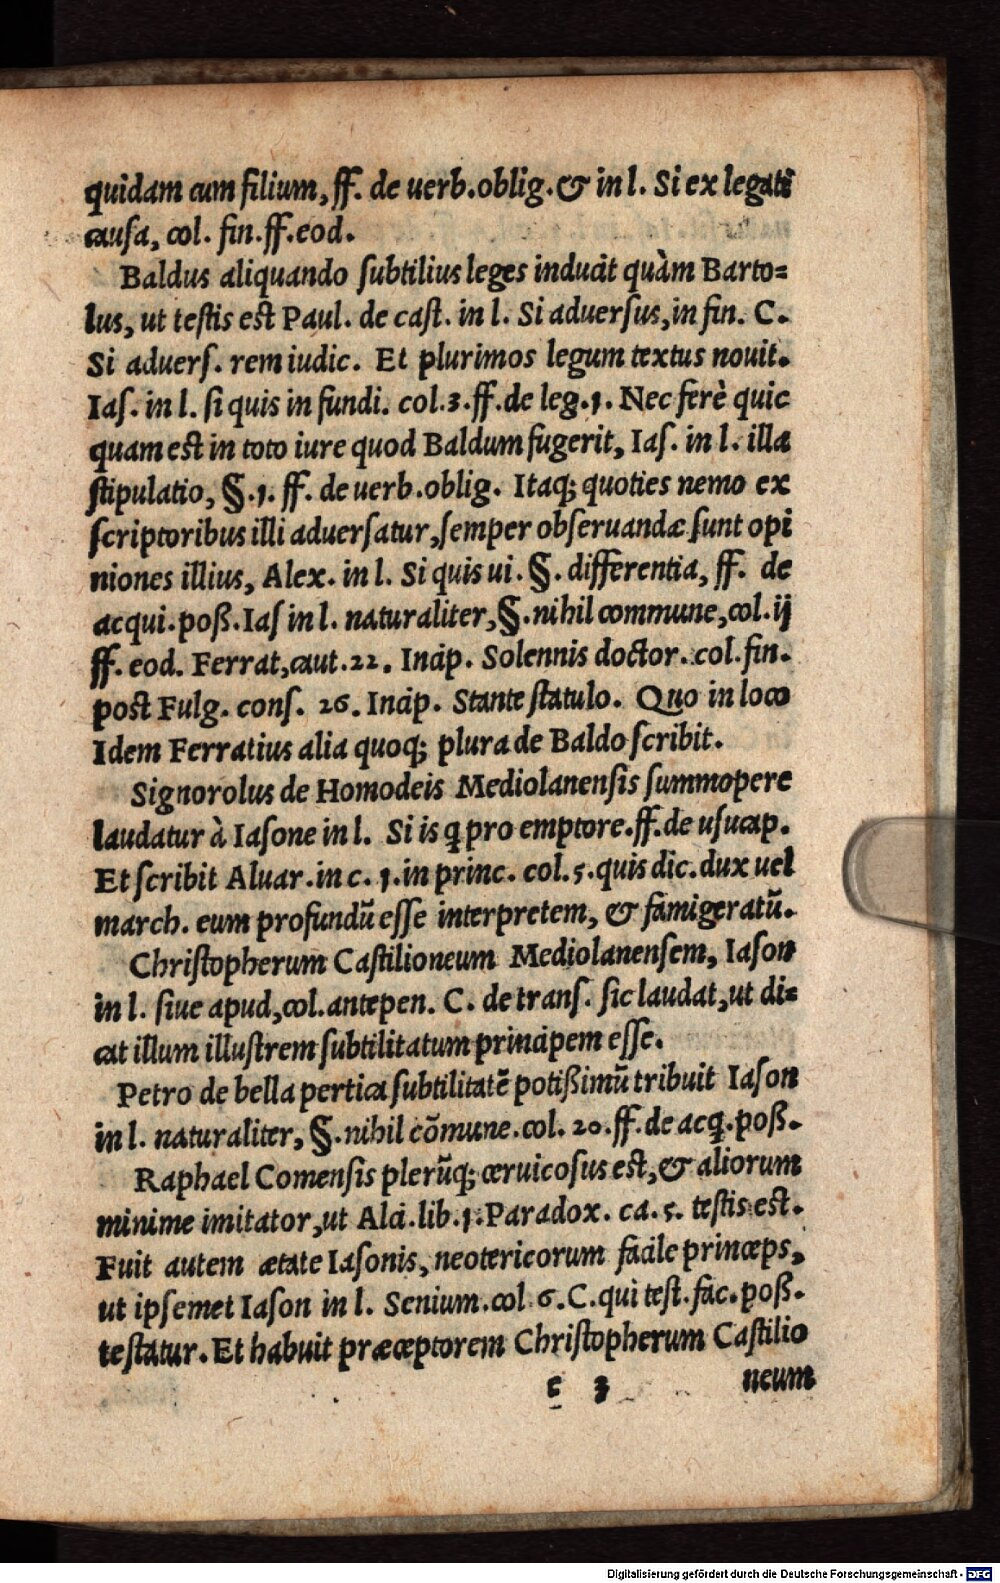 quidam cum filium, ff. de uerb.oblig.& in l. Si ex legati
causa, col. fin.ff.eod.
Baldus aliquando subtilius leges inducit quàm Barto=
lus, ut testis est Paul. de cast. in l. Si aduersus, in fin. C.
Si aduers. rem iudic. Et plurimos legum textus nouit.
Ias. in l. si quis in fundi. col.3.ff.de leg.1. Nec ferè quic
quam est in toto iure quod Baldum fugerit, Ias. in l. illa
stipulatio, §.1. ff. de uerb.oblig. Itaq; quoties nemo ex
scriptoribus illi aduersatur, semper obseruandæ sunt opi
niones illius, Alex. in l. Si quis ui. §. differentia, ff. de
acqui.poß.Ias in l. naturaliter, §.nihil commune, col.ij
ff. eod. Ferrat, caut.22. Incip. Solennis doctor. col.fin.
post Fulg. cons. 26. Incip. Stante statulo. Quo in loco
Idem Ferratius alia quoq; plura de Baldo scribit.
Signorolus de Homodeis Mediolanensis summopere
laudatur à Iasone in l. Si is q̃ pro emptore.ff.de usucap.
Et scribit Aluar.in c. 1.in princ. col.5.quis dic.dux uel
march. eum profundũ esse interpretem, & famigeratũ.
Christopherum Castilioneum Mediolanensem, Iason
in l. siue apud, col.antepen. C. de trans. sic laudat, ut di=
cat illum illustrem subtilitatum principem esse.
Petro de bella pertica subtilitatẽ potißimũ tribuit Iason
in l. naturaliter, §.nihil cõmune.col. 20.ff.de acq̃.poß.
Raphael Comensis plerũq; ceruicosus est, & aliorum
minime imitator, ut Alci.lib.1.Paradox. ca.5. testis est.
Fuit autem ætate Iasonis, neotericorum facile princeps,
ut ipsemet Iason in l. Senium.col 6.C.qui test.fac.poß.
testatur. Et habuit præceptorem Christopherum Castilio
c 3 neum
Digitalisierung gefördert durch die Deutsche Forschungsgemeinschaft - DFG